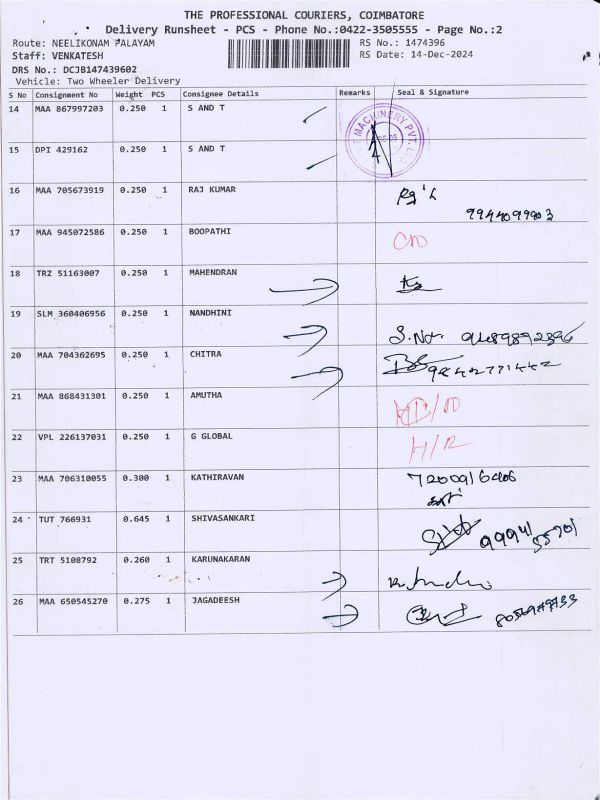 THE PROFESSIONAL COURIERS, COIMBATORE
Delivery Runsheet - PCS - Phone No.:0422-3505555 - Page No.:2
Route: NEELIKONAM PALAYAM RS No.: 1474396
Staff: VENKATESH RS Date: 14-Dec-2024
DRS No.: DCJB147439602
Vehicle: Two Wheeler Delivery
S No Consignment No Weight PCS Consignee Details Remarks Seal & Signature
14 MAA 867997203 0.250 1 S AND T
MACHINERY PVT.
15 DPI 429162 0.250 1 S AND T
16 MAA 705673919 0.250 1 RAJ KUMAR
9944099903
17 MAA 945072586 0.250 1 BOOPATHI
18 TRZ 51163007 0.250 1 MAHENDRAN
19 SLM 360406956 0.250 1 NANDHINI
20 MAA 704362695 0.250 1 CHITRA
21 MAA 868431301 0.250 1 AMUTHA
22 VPL 226137031 0.250 1 G GLOBAL
23 MAA 706310055 0.300 1 KATHIRAVAN
24 TUT 766931 0.645 1 SHIVASANKARI
25 TRT 5108792 0.260 1 KARUNAKARAN
26 MAA 650545270 0.275 1 JAGADEESH